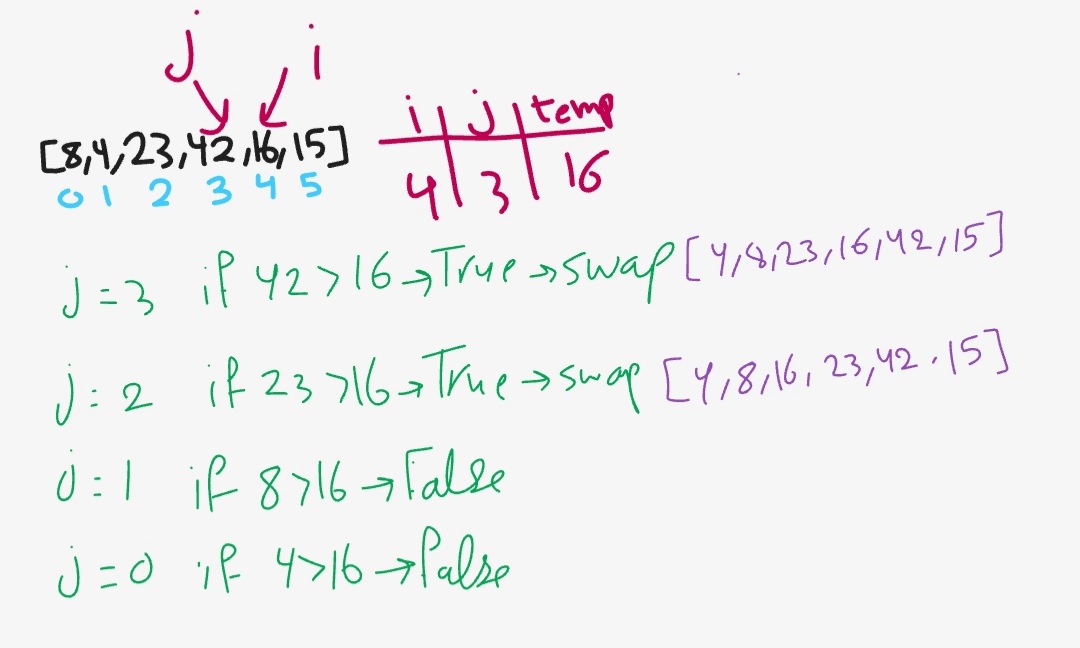 j i
[8,4,23,42,16,15]
0 1 2 3 4 5
i j temp
4 3 16
j=3 if 42>16→True→swap [4,8,23,16,42,15]
j=2 if 23>16→True→swap [4,8,16,23,42,15]
j=1 if 8>16→False
j=0 if 4>16→False